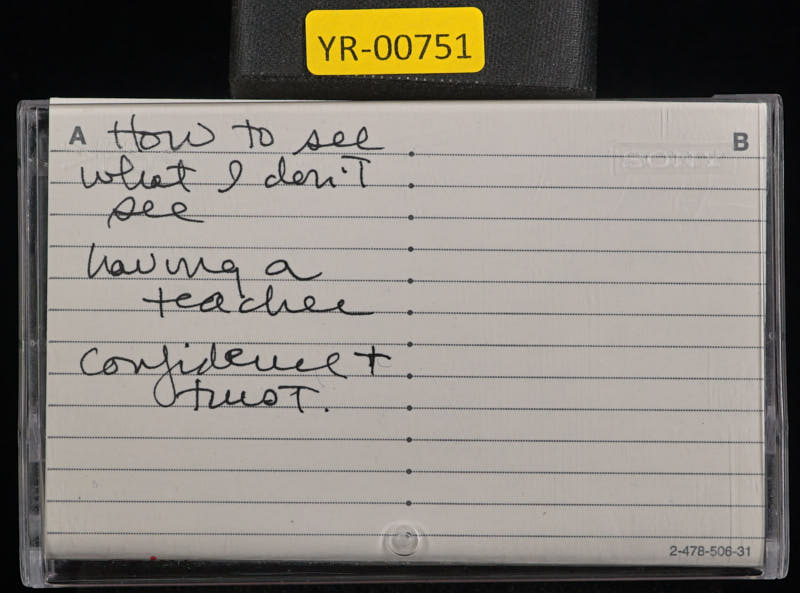 YR-00751
A How to see
B
SONY
what I don't
see
having a
teacher
confidence +
trust.
2-478-506-31